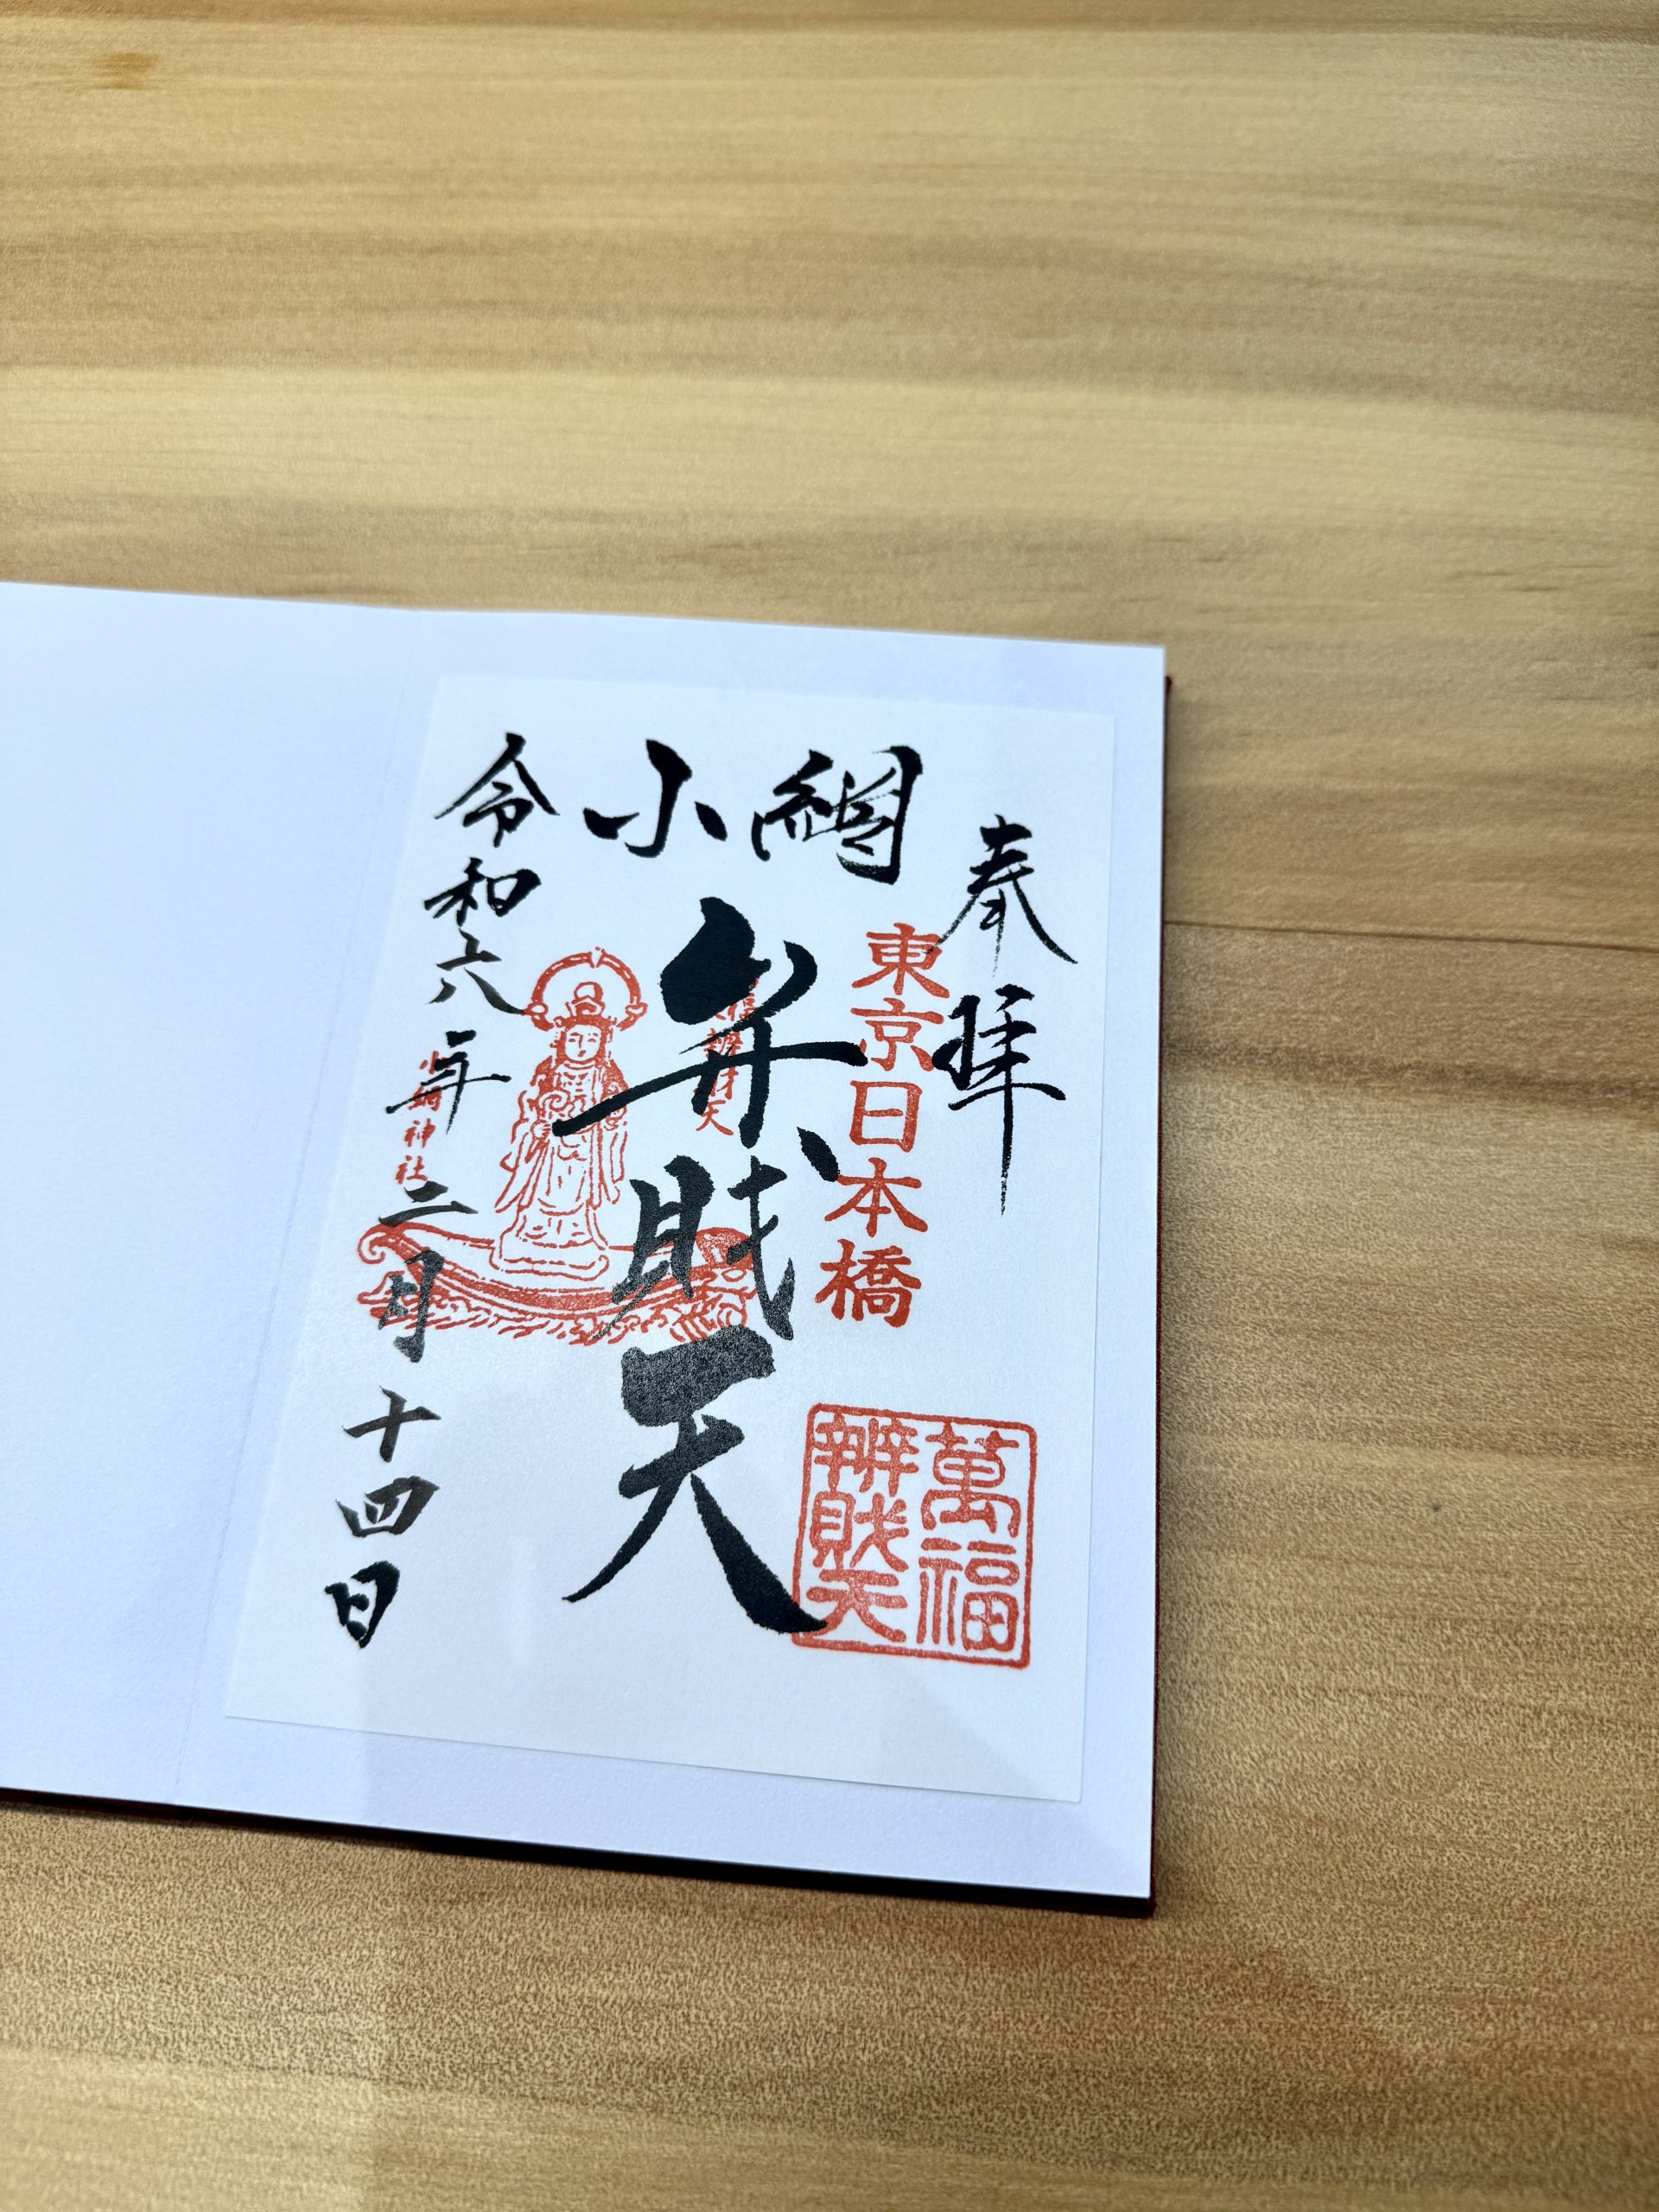 奉拝
東京日本橋
萬福
辨財天
小網
弁財天
小網神社
令和六年二月十四日